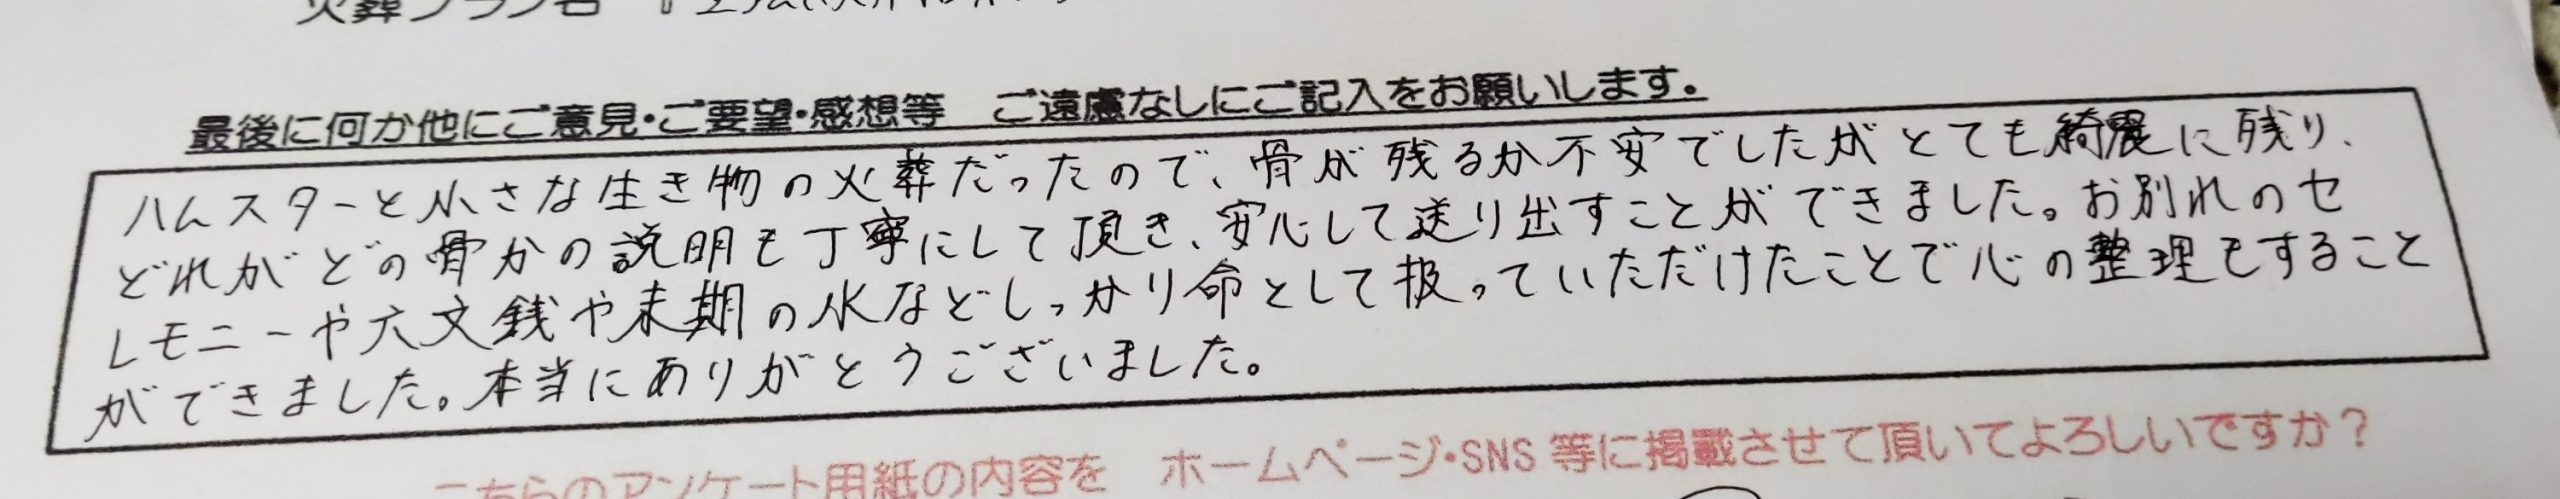 火葬プラン名
最後に何か他にご意見・ご要望・感想等　ご遠慮なしにご記入をお願いします。
ハムスターと小さな生き物の火葬だったので、骨が残るか不安でしたがとても綺麗に残り、
どれがどの骨かの説明も丁寧にして頂き、安心して送り出すことができました。お別れのセ
レモニーや六文銭や末期の水などしっかり命として扱っていただけたことで心の整理もすること
ができました。本当にありがとうございました。
こちらのアンケート用紙の内容を　ホームページ・SNS 等に掲載させて頂いてよろしいですか？